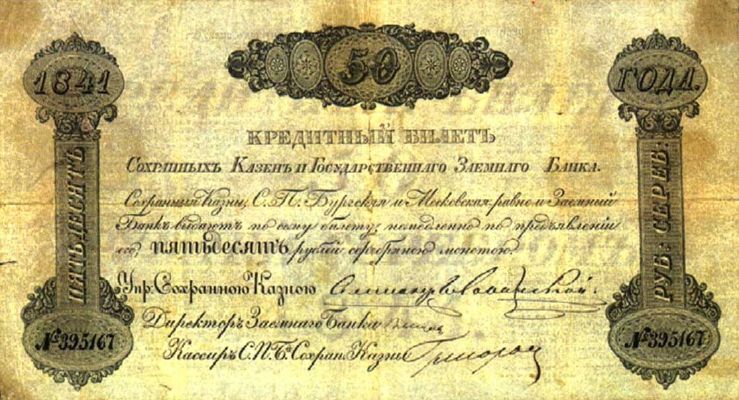 50
1841 ГОДА.
КРЕДИТНЫЙ БИЛЕТЪ
Сохранныхъ Казенъ и Государственнаго Заемнаго Банка.
Сохранныя Казны, С. П. Бургская и Московская равно и Заемный
Банкъ выдаютъ по сему билету, немедленно по предъявленіи
его, пятьдесятъ рублей серебряною монетою.
Упр: Сохранною Казною
Директоръ Заемнаго Банка
Кассиръ С. П. Б. Сохран. Казны
ПЯТЬДЕСЯТЪ
РУБ: СЕРЕБ:
№395167
№395167